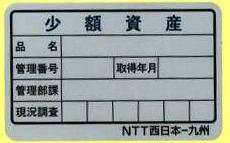 少額資産
品名
管理番号 取得年月
管理部課
現況調査
NTT西日本-九州